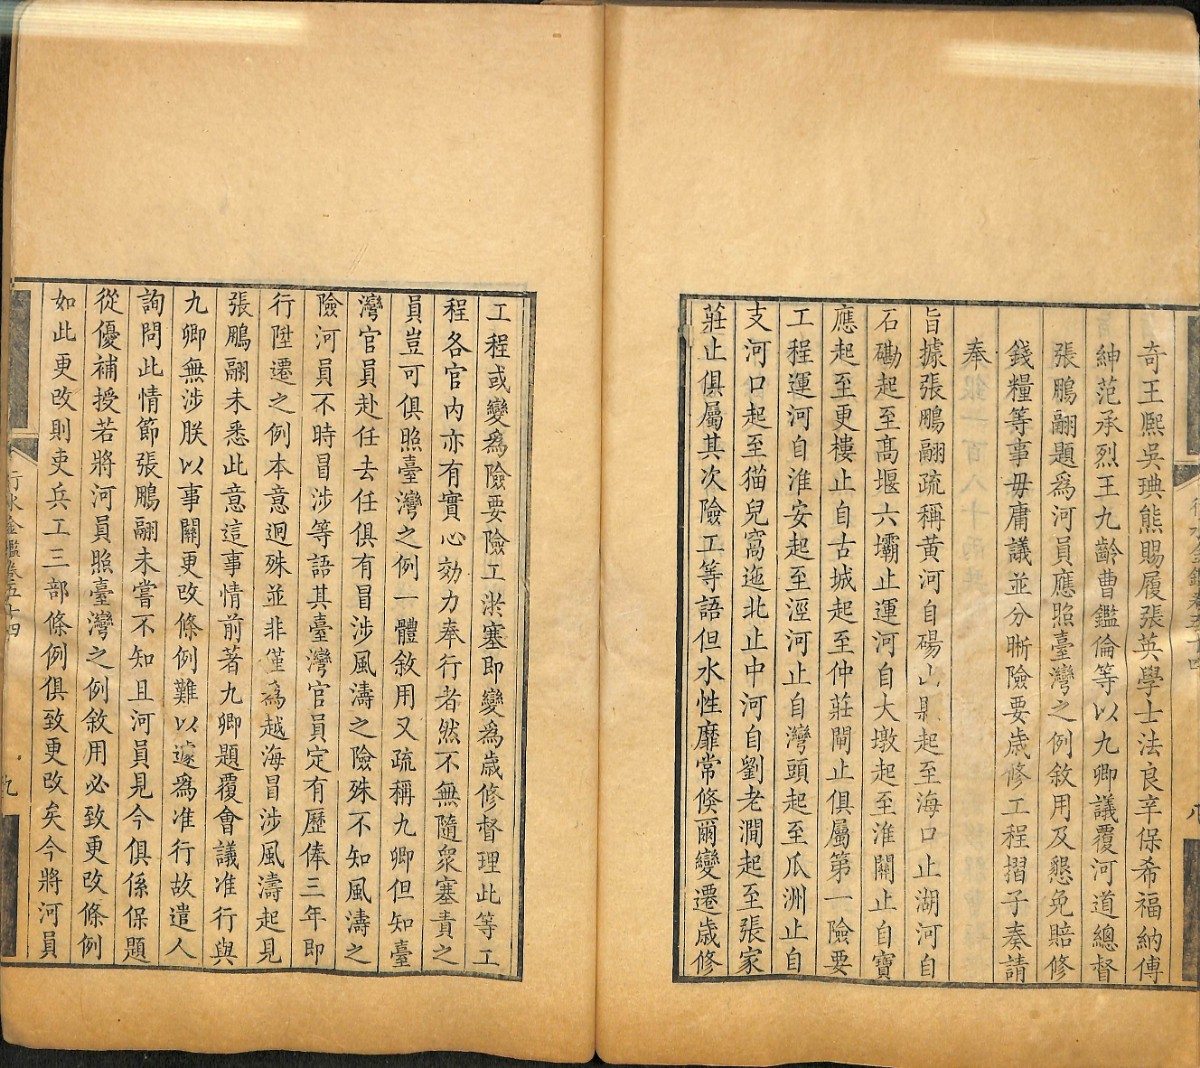 奇王熙吳琠熊賜履張英學士法良辛保希福納傅
紳范承烈王九齡曹鑑倫等以九卿議覆河道總督
張鵬翮題爲河員應照臺灣之例敘用及懇免賠修
錢糧等事毋庸議並分晰險要歲修工程摺子奏請
奉
旨據張鵬翮疏稱黃河自碭山縣起至海口止湖河自
石磡起至高堰六壩止運河自大墩起至淮關止自寶
應起至更樓止自古城起至仲莊閘止俱屬第一險要
工程運河自淮安起至涇河止自灣頭起至瓜洲止自
支河口起至猫兒窩迤北止中河自劉老澗起至張家
莊止俱屬其次險工等語但水性靡常倏爾變遷歲修
工程或變爲險要險工淤塞即變爲歲修督理此等工
程各官内亦有實心効力奉行者然不無隨衆塞責之
員豈可俱照臺灣之例一體敘用又疏稱九卿但知臺
灣官員赴任去任俱有冒涉風濤之險殊不知風濤之
險河員不時冒涉等語其臺灣官員定有歷俸三年即
行陞遷之例本意迥殊並非僅爲越海冒涉風濤起見
張鵬翮未悉此意這事情前著九卿題覆會議准行與
九卿無涉朕以事關更改條例難以遽爲准行故遣人
詢問此情節張鵬翮未嘗不知且河員見今俱係保題
從優補授若將河員照臺灣之例敘用必致更改條例
如此更改則吏兵工三部條例俱致更改矣今將河員
行水金鑑卷五十四
九